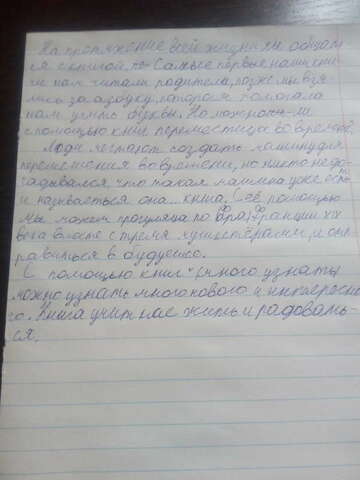 На протяжение всей жизни мы общаем-
ся с книгой, то Самые первые наши кни-
ги нам читали родители, позже мы взя-
лись за азбуку, которая помогала
нам учить буквы. Но можно ли
с помощью книг переместиться во времени?
Люди мечтают создать машину для
перемешения во времени, но никто не до-
гадывался, что такая машина уже есть
и называеться она... книга. С её помощью
мы можем прогуляца по Франции XIX
века вместе с тремя мушкетёрами, и отп
равиться в будущее.
С помощью книг много узнать
можно узнать много нового и интересно
го. Книга учит нас жить и радовать-
ся.